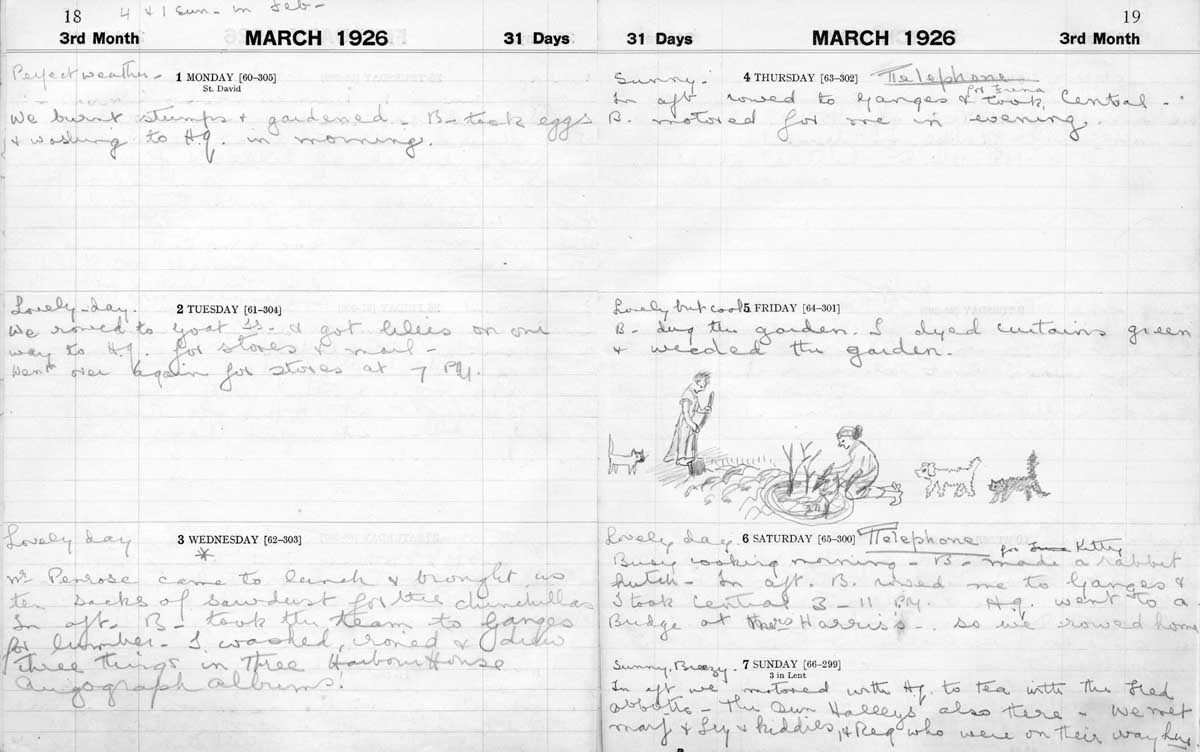 18
4 & 1 Sun - in Feb -
3rd Month MARCH 1926 31 Days
Perfect weather -
1 MONDAY [60-305]
St. David
We burnt stumps & gardened - B - took eggs
& washing to Hq. in morning.
Lovely day.
2 TUESDAY [61-304]
We rowed to Goat Is - & got lilies on our
way to H.q. for stores & mail -
Went over again for stores at 7 PM.
Lovely day
3 WEDNESDAY [62-303]
*
Mr Penrose came to lunch & brought us
ten sacks of sawdust for the chinchillas
In aft. B - took the team to Ganges
for lumber - I washed, ironed & drew
three things in three Harbour House
Autograph albums!
19
31 Days MARCH 1926 3rd Month
Sunny -
4 THURSDAY [63-302] Telephone
for Irena
In aft rowed to Ganges & took Central -
B. motored for me in evening.
Lovely but cool
5 FRIDAY [64-301]
B - dug the garden. I dyed curtains green
& weeded the garden.
Lovely day.
6 SATURDAY [65-300] Telephone
for Kitty
Busy cooking morning - B - made a rabbit
hutch - In aft. B. rowed me to Ganges &
I took Central 3 - 11 PM. Hq. went to a
Bridge at Mrs Harris's - so we rowed home
Sunny, Breezy.
7 SUNDAY [66-299]
3 in Lent
In aft we motored with Hq. to tea with the Fred
Abbotts - The Halleys also there - We met
& kiddies, & Reg who were on their way